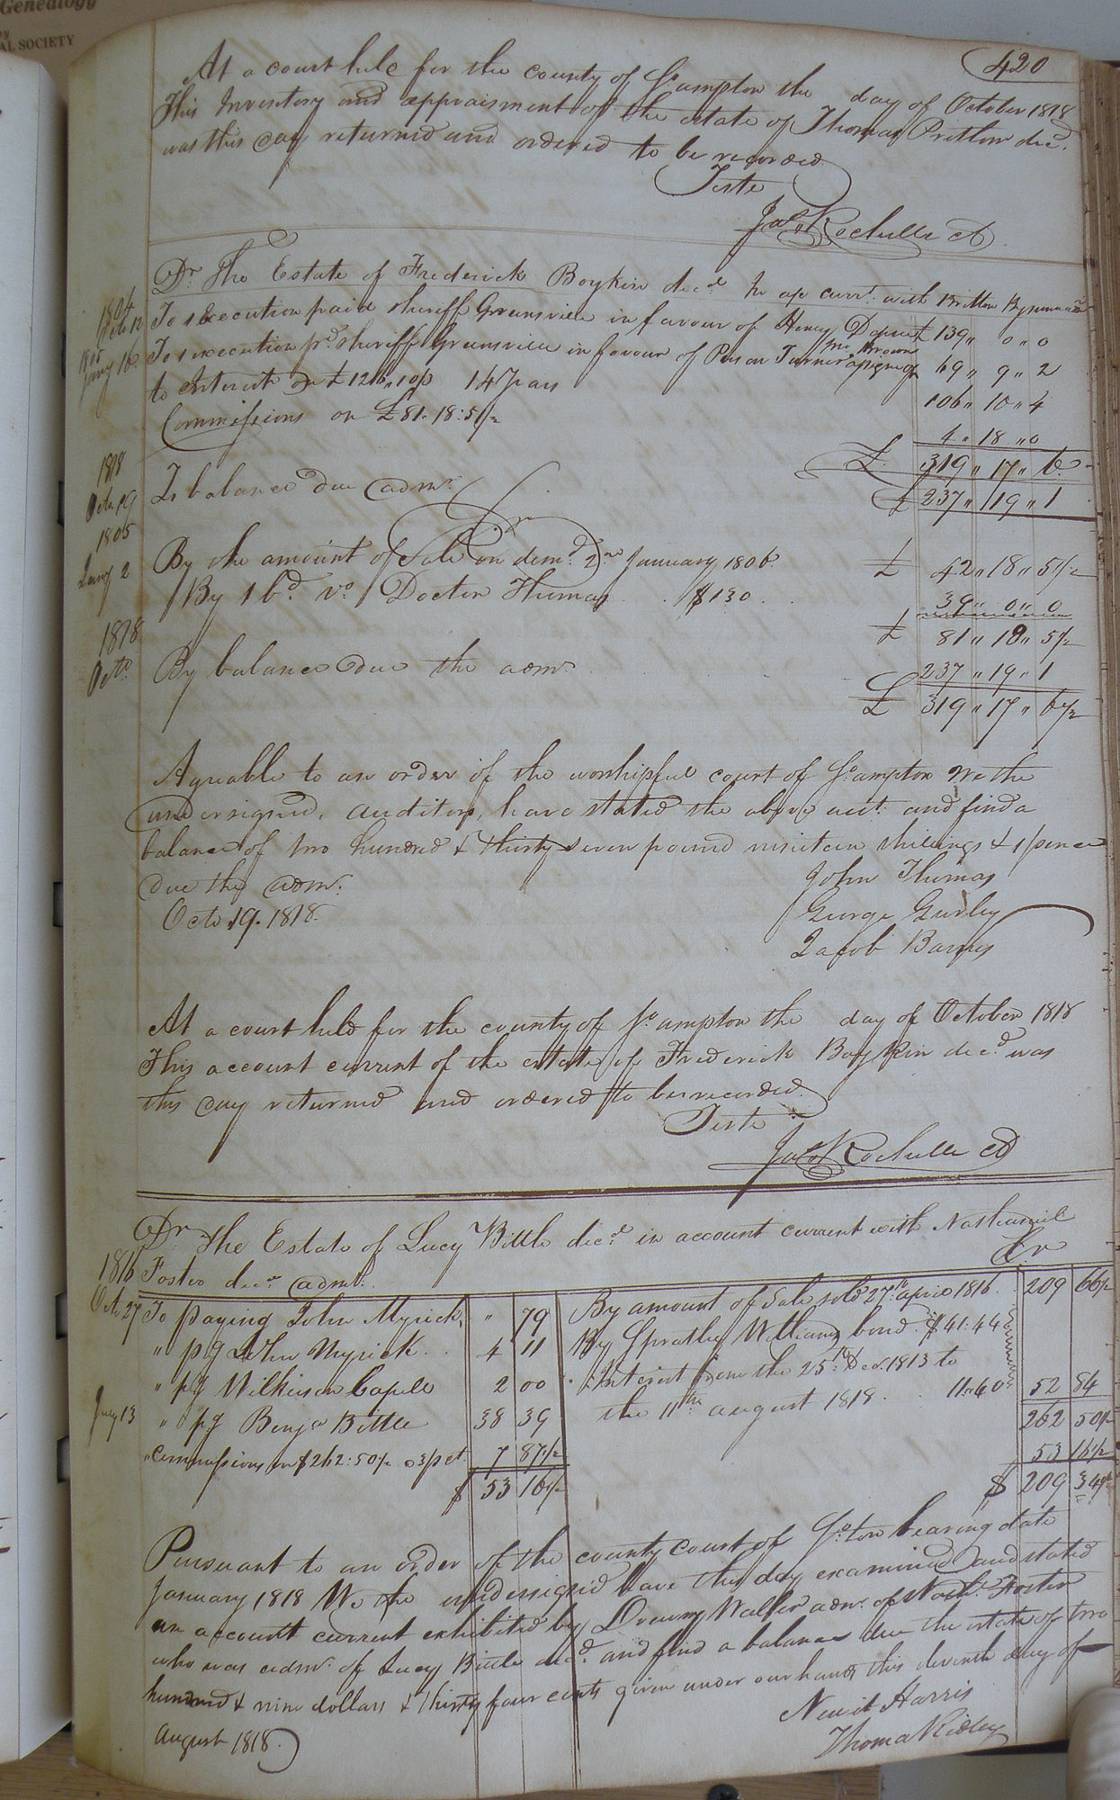 Genealogy
AL SOCIETY
420
At a court held for the county of So ampton the day of October 1818
This Inventory and appraisment of the estate of Thomas Pretlow decd.
was this day returned and ordered to be recorded
Teste
Jas Rochelle CC
Dr The Estate of Frederick Boykin decd In a/c currt with Britton
1804
To execution paid sheriff Greensville in favour of Henry 139 " 0 " 0
1805
Jany 16 To execution pd sheriff Greensville in favour of Person Turner assignee of 69 " 9 " 2
Jno Brown
to Interest on £126.10/ 14 years 106 " 10 " 4
Commissions on £81.18.5 1/2 4 " 18 " 0
£ 319 " 17 " 6
1818
Octo 19 To balance due admr. £ 237 " 19 " 1
Cr
1805
Jany 2 By the amount of Sale on demd. 2nd January 1806 £ 42 " 18 " 5 1/2
By 1 bd. vs Doctor Thomas $130 39 " 0 " 0
£ 81 " 18 " 5 1/2
1818
Octo By balance due the admr 237 " 19 " 1
£ 319 " 17 " 6 1/2
Agreable to an order of the worshipful court of So ampton We the
undersigned, auditors, have stated the above acct. and find a
balance of two hundred & thirty seven pound nineteen shillings & 1/pence
due the admr.
John Thomas
Octo 19. 1818.
George Gurley
Jacob Barnes
At a court held for the county of So ampton the day of October 1818
This account current of the estate of Frederick Boykin decd was
this day returned and ordered to be recorded.
Teste
Jas Rochelle CC
Dr The Estate of Lucy Bittle decd. in account current with Nathaniel
Foster decd admr. Cr
1816
Oct. 27 To paying John Myrick " 79 By amount of Sale sold 27th april 1816. 209 66 1/2
" pg John Myrick 4 11 By Spratley Williams bond $41.44
" pg Wilkinson Capell 2 00 Interest from the 25th Dec. 1813 to
the 11th august 1818. 11.40 52 84
July 13 " pg Benja Bittle 38 39 262 50 1/2
" Commissions on $262.50 1/2 @ 3 pct. 7 87 1/2 53 16 1/2
$ 53 16 1/2 $ 209 34
Pursuant to an order of the county court of So.ton bearing date
January 1818 We the undersigned have this day examined and stated
an account current exhibited by Drewry Walker admr. of Nathl. Foster
who was admr. of Lucy Bittle decd. and find a balance due the estate of two
hundred & nine dollars & thirty four cents given under our hands this eleventh day of
August 1818.
Newit Harris
Thomas Ridley